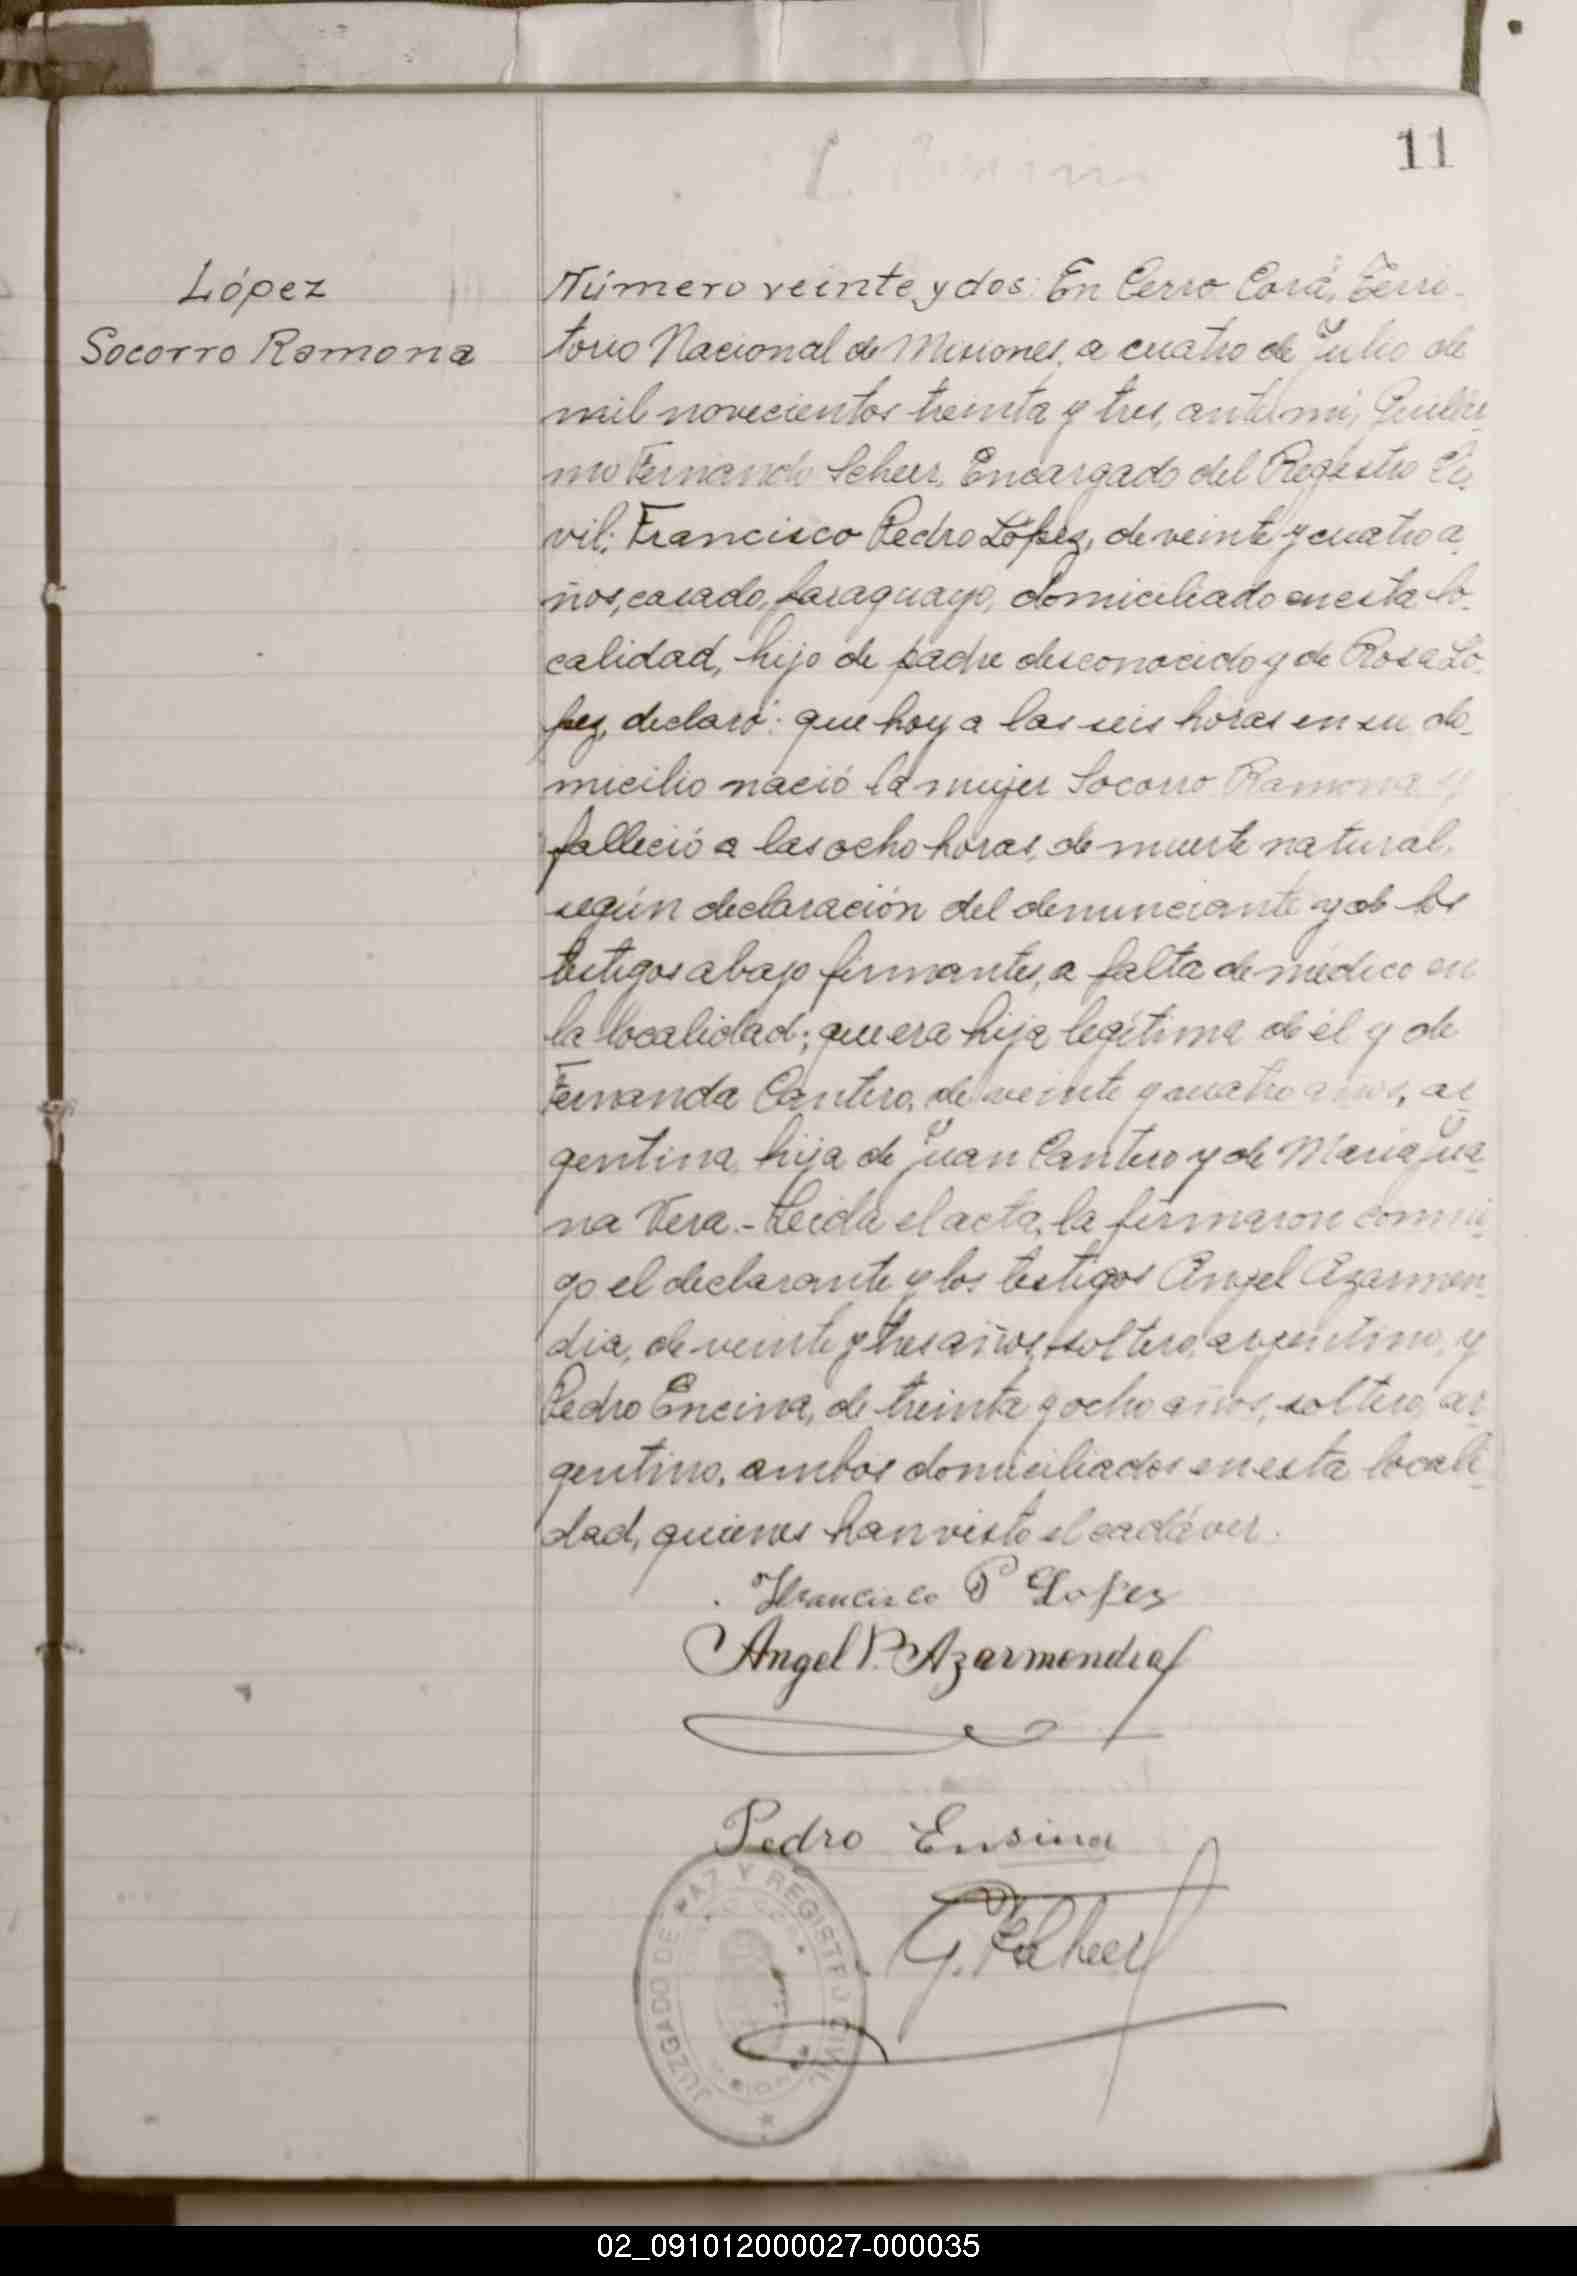 11
López
Socorro Ramona
Número veinte y dos: En Cerro Corá, Terri-
torio Nacional de Misiones, a cuatro de Julio de
mil novecientos treinta y tres, ante mi, Guiller-
mo Fernando Scheer, Encargado del Registro Ci-
vil: Francisco Pedro López, de veinte y cuatro a-
ños, casado, paraguayo, domiciliado en esta lo-
calidad, hijo de padre desconocido y de Rosa Ló-
pez, declaró: que hoy a las seis horas en su do-
micilio nació la mujer Socorro Ramona y
falleció a las ocho horas, de muerte natural,
según declaración del denunciante y de los
testigos abajo firmantes, a falta de médico en
la localidad; que era hija legítima de él y de
Fernanda Cantero, de veinte y cuatro años, ar-
gentina, hija de Juan Cantero y de María Jua-
na Vera.- Leida el acta, la firmaron conmi-
go el declarante y los testigos Angel Azarmen-
dia, de veinte y tres años, soltero, argentino, y
Pedro Encina, de treinta y ocho años, soltero, ar-
gentino, ambos domiciliados en esta locali-
dad, quienes han visto el cadáver.
Francisco P Lopez
Angel P. Azarmendia
Pedro Ensina
G. F. Scheer
JUZGADO DE PAZ Y REGISTRO CIVIL
02_091012000027-000035